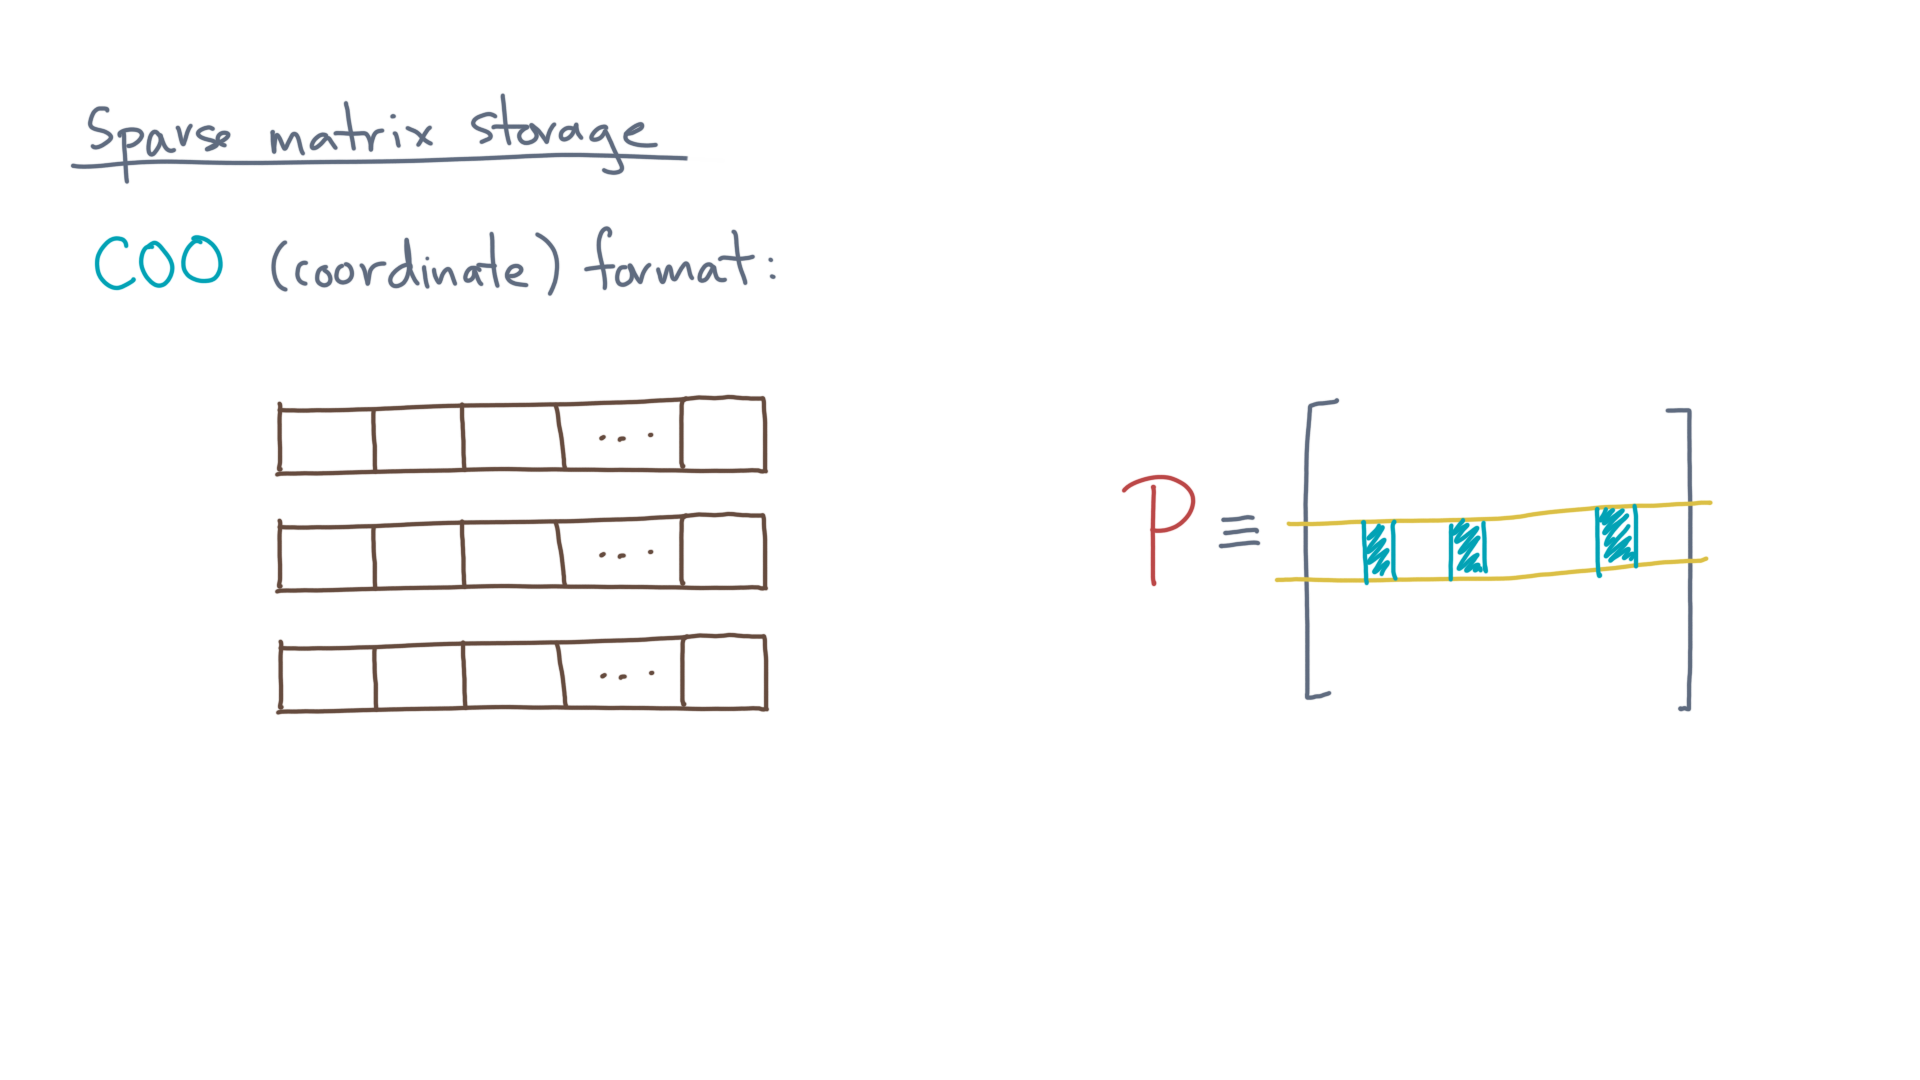 Sparse matrix storage
COO (coordinate) format:
...
...
...
P ≡